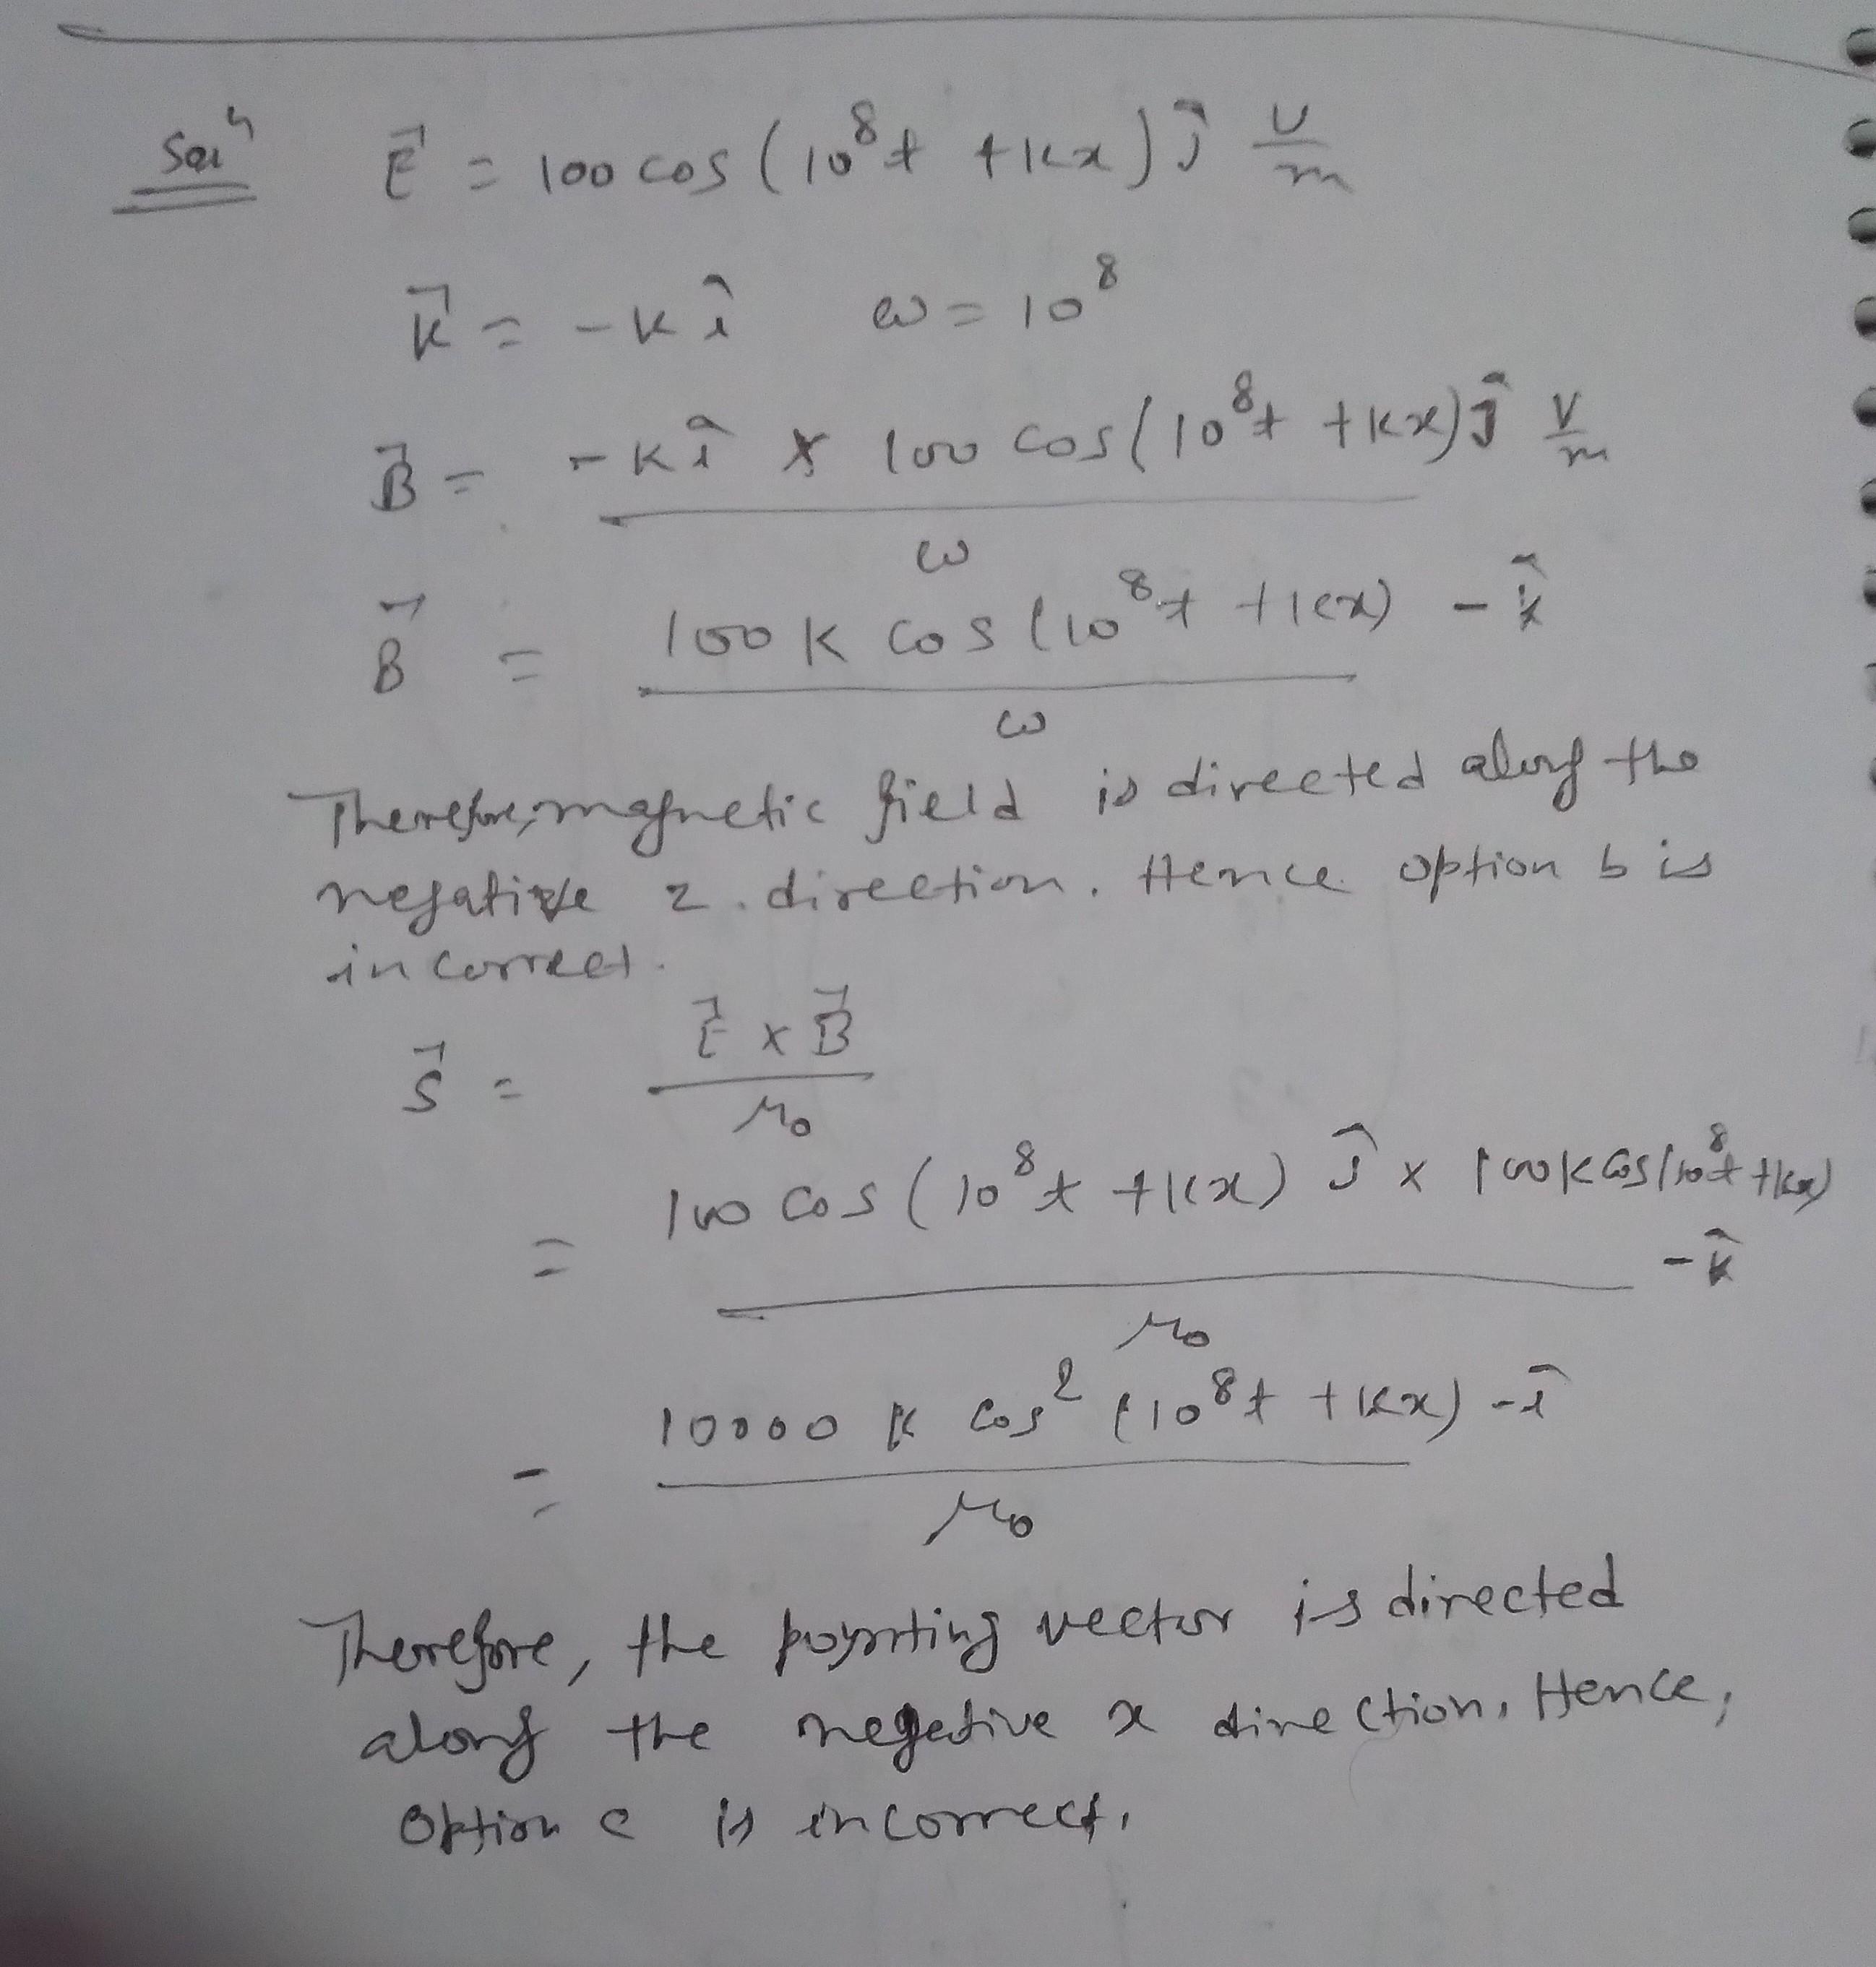 Solⁿ E⃗ = 100 cos (10⁸t + kx) ĵ V/m
K⃗ = -K î ω = 10⁸
B⃗ = -K î × 100 cos(10⁸t + kx) ĵ V/m
ω
B⃗ = 100 K cos (10⁸t + kx) - k̂
ω
Therefore, magnetic field is directed along the
negative z. direction. Hence option b is
incorrect.
S⃗ = E⃗ × B⃗
μ₀
= 100 cos (10⁸t + kx) ĵ × 100 K cos(10⁸t + kx)
- k̂
μ₀
= 10000 K cos² (10⁸t + kx) - î
μ₀
Therefore, the poynting vector is directed
along the negetive x direction. Hence,
option c is incorrect.